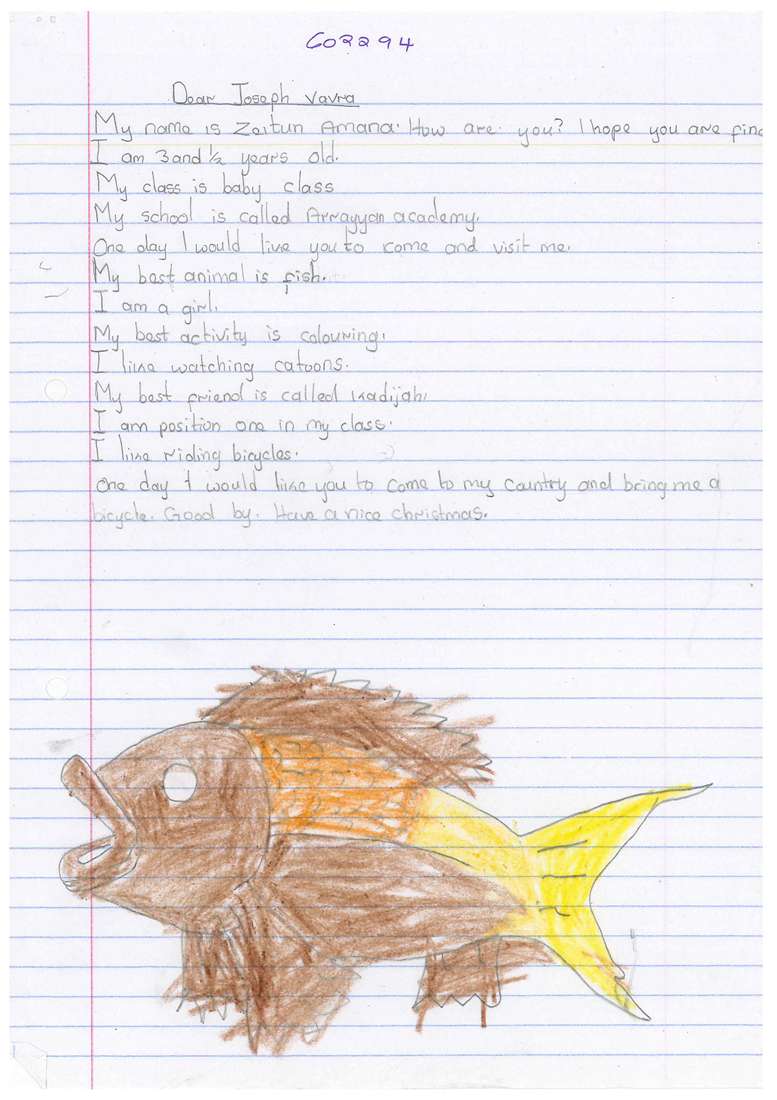 602294
Dear Joseph Vavra
My name is Zeitun Amana. How are you? I hope you are fine
I am 3 and 1/2 years old.
My class is baby class
My school is called Arrayyan academy.
One day I would like you to come and visit me.
My best animal is fish.
I am a girl.
My best activity is colouring.
I like watching catoons.
My best friend is called Kadijah.
I am position one in my class.
I like riding bicycles.
One day I would like you to come to my country and bring me a
bicycle. Good by. Have a nice christmas.